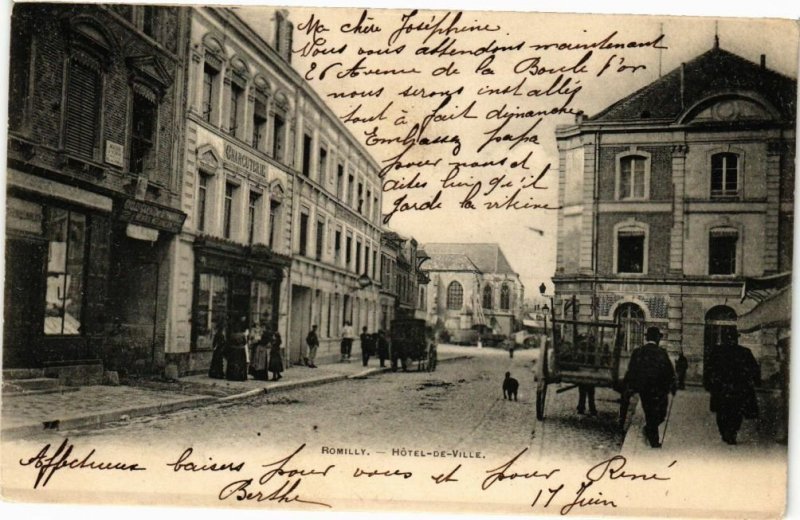 Ma chère Joséphine
Nous vous attendons maintenant
26 Avenue de la Boule d'or
nous serons installés
tout à fait dimanche
Embrassez papa
pour nous et
dites lui qu'il
garde la vitrine
CHARCUTERIE
ROMILLY. — HÔTEL-DE-VILLE.
Affectueux baisers pour vous et pour René
Berthe 17 Juin